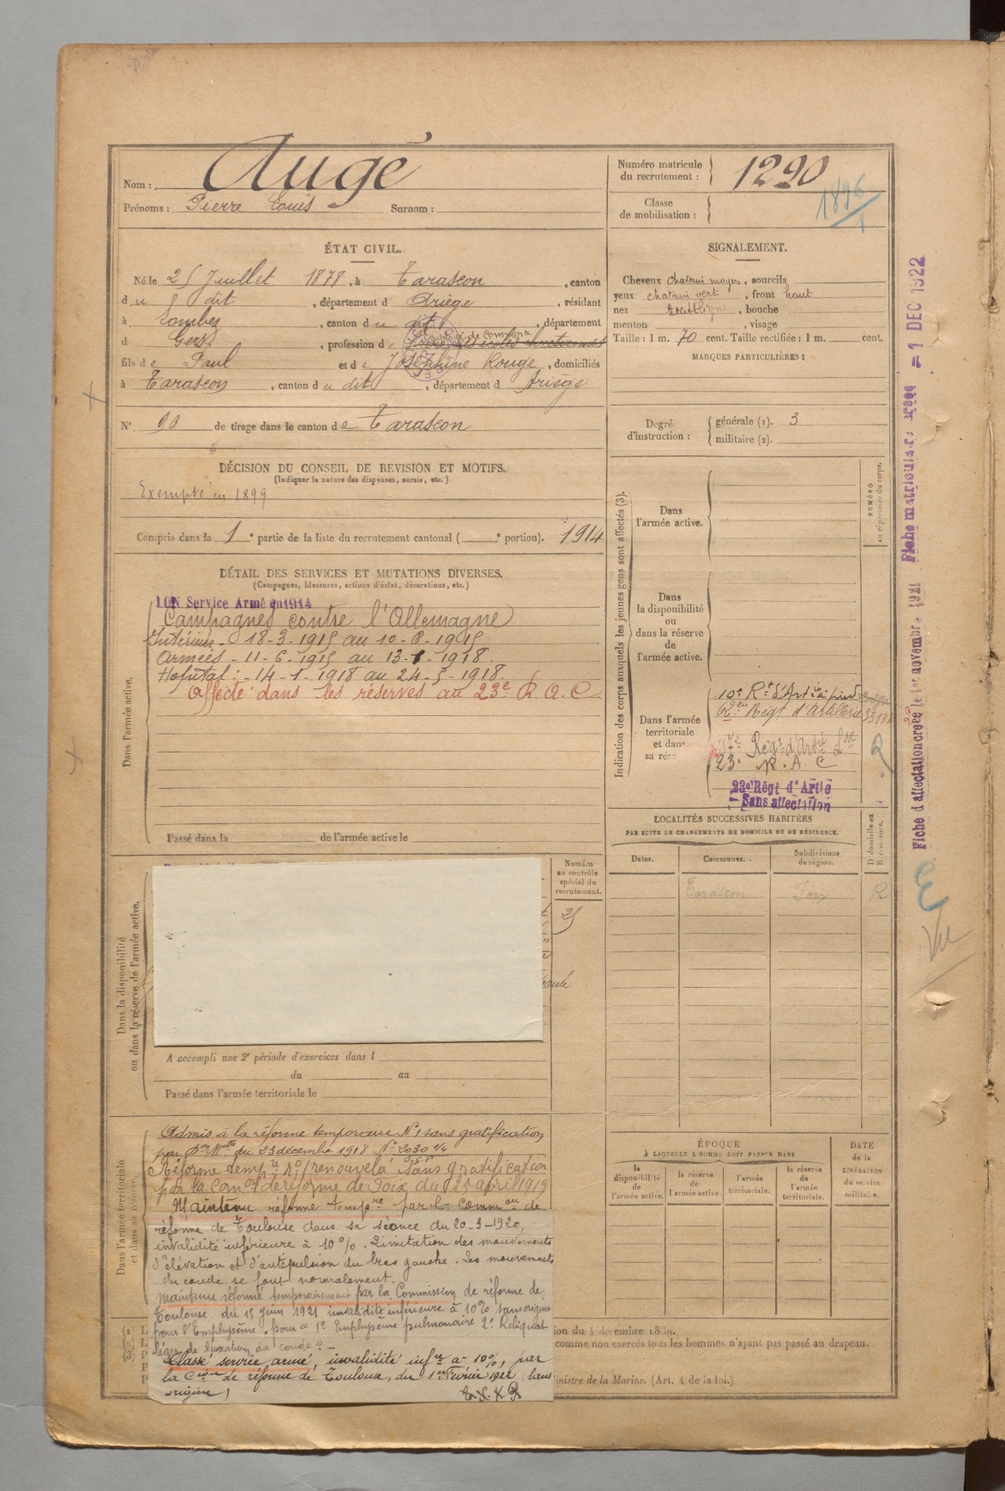 Nom : Augé
Prénoms : Pierre Louis Surnom :
Numéro matricule du recrutement : 1290
Classe de mobilisation : 1896
ÉTAT CIVIL.
Né le 25 Juillet 1878, à Tarascon, canton
du dit, département d Ariège, résidant
à Lombez, canton du dit, département
d Gers, profession d
fils de Paul et de Joséphine Rouge, domiciliés
à Tarascon, canton du dit, département d Ariège
N° 90 de tirage dans le canton de Tarascon
SIGNALEMENT.
Cheveux chatain moyen, sourcils
yeux chatain vert, front haut
nez rectiligne, bouche
menton, visage
Taille : 1 m. 70 cent. Taille rectifiée : 1 m. cent.
MARQUES PARTICULIÈRES :
Degré d'instruction : générale (1). 3
militaire (2).
DÉCISION DU CONSEIL DE REVISION ET MOTIFS.
(Indiquer la nature des dispenses, sursis, etc.)
Exempté en 1899
Compris dans la 1e partie de la liste du recrutement cantonal ( e portion). 1914
DÉTAIL DES SERVICES ET MUTATIONS DIVERSES.
(Campagnes, blessures, actions d'éclat, décorations, etc.)
Dans l'armée active.
BON Service Armé en 1914
Campagnes contre l'Allemagne
Intérieur - 18-3-1915 au 10-6-1915
Armées - 11-6-1915 au 13-1-1918
Hôpital : - 14-1-1918 au 24-5-1918
Affecté dans les réserves au 23e R A C
Passé dans la de l'armée active le
Indication des corps auxquels les jeunes gens sont affectés (3).
NUMÉRO
Dans l'armée active.
Dans la disponibilité ou dans la réserve de l'armée active.
Dans l'armée territoriale et dans sa réserve
10e Rt d'Artie à pied
Regt d'Artillerie
Regt d'Artie Lde
23e R.A.C
23e Régt d'Artie
Sans affectation
R
LOCALITÉS SUCCESSIVES HABITÉES
PAR SUITE DE CHANGEMENTS DE DOMICILE OU DE RÉSIDENCE.
Dates. Communes. Subdivisions de région. D domicile ou R résidence.
Tarascon Foix R
Dans la disponibilité ou dans la réserve de l'armée active.
Numéro au contrôle spécial du recrutement.
25
A accompli une 2e période d'exercices dans l
du au
Passé dans l'armée territoriale le
Dans l'armée territoriale et dans sa réserve.
Admis à la réforme temporaire N°1 sans gratification
par du 23 décembre 1918 N° 2030
Réforme tempre N°1 renouvelé sans gratification
par la Comon de réforme de Foix du 25 avril 1919
Maintenu réformé tempre par la Common de
réforme de Toulouse dans sa séance du 20-3-1920,
invalidité inférieure à 10%. Limitation des mouvements
d'élévation et d'antépulsion du bras gauche. Les mouvements
du coude se font normalement.
Maintenu réformé temporairement par la Commission de réforme de
Toulouse du 15 juin 1921 invalidité inférieure à 10% sans origine
pour l'Emphysème. pour 1° Emphysème pulmonaire 2° Reliquat
léger de luxation du coude
Classé service armé, invalidité infre à 10%, par
la Cion de réforme de Toulouse, du 1er février 1922, (sans
origine)
ÉPOQUE
À LAQUELLE L'HOMME DOIT PASSER DANS
la disponibilité de l'armée active. la réserve de l'armée active. l'armée territoriale. la réserve de l'armée territoriale.
DATE de la LIBÉRATION du service militaire.
comme non exercés tous les hommes n'ayant pas passé au drapeau.
ministre de la Marine. (Art. 4 de la loi.)
Fiche d'affectation créée le 1er novembre 1921
Fiche matriculaire créée = 1 DEC 1922
Vu